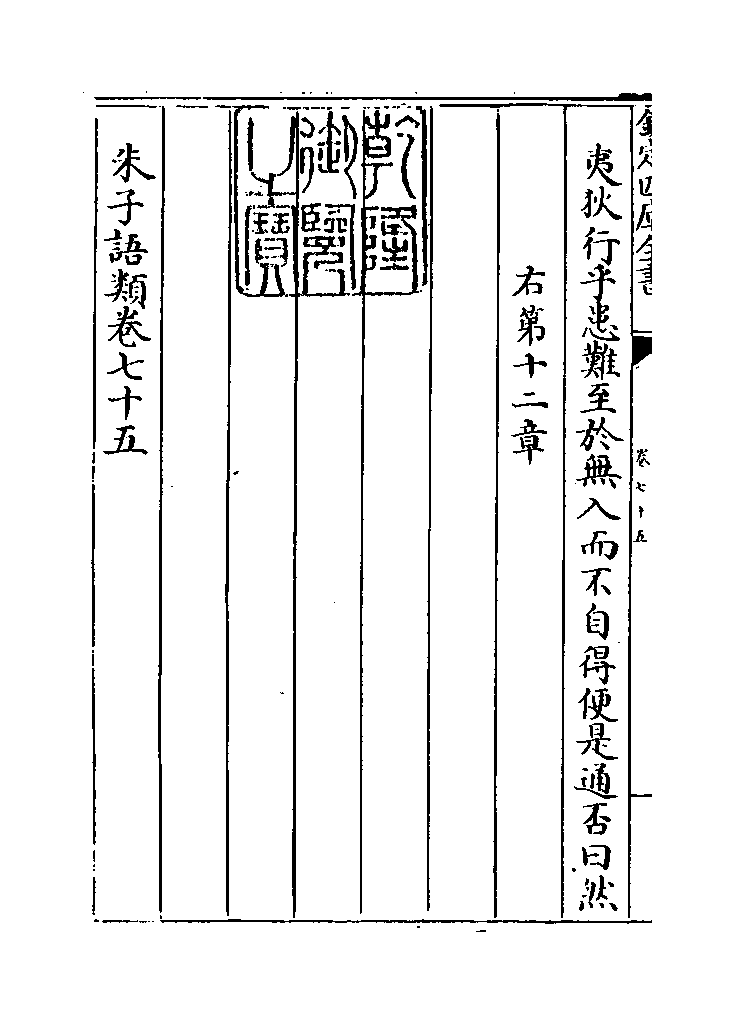 欽定四庫全書
卷七十五
夷狄行乎患難至於無入而不自得便是通否曰然
右第十二章
乾隆
御覽
之寶
朱子語類卷七十五